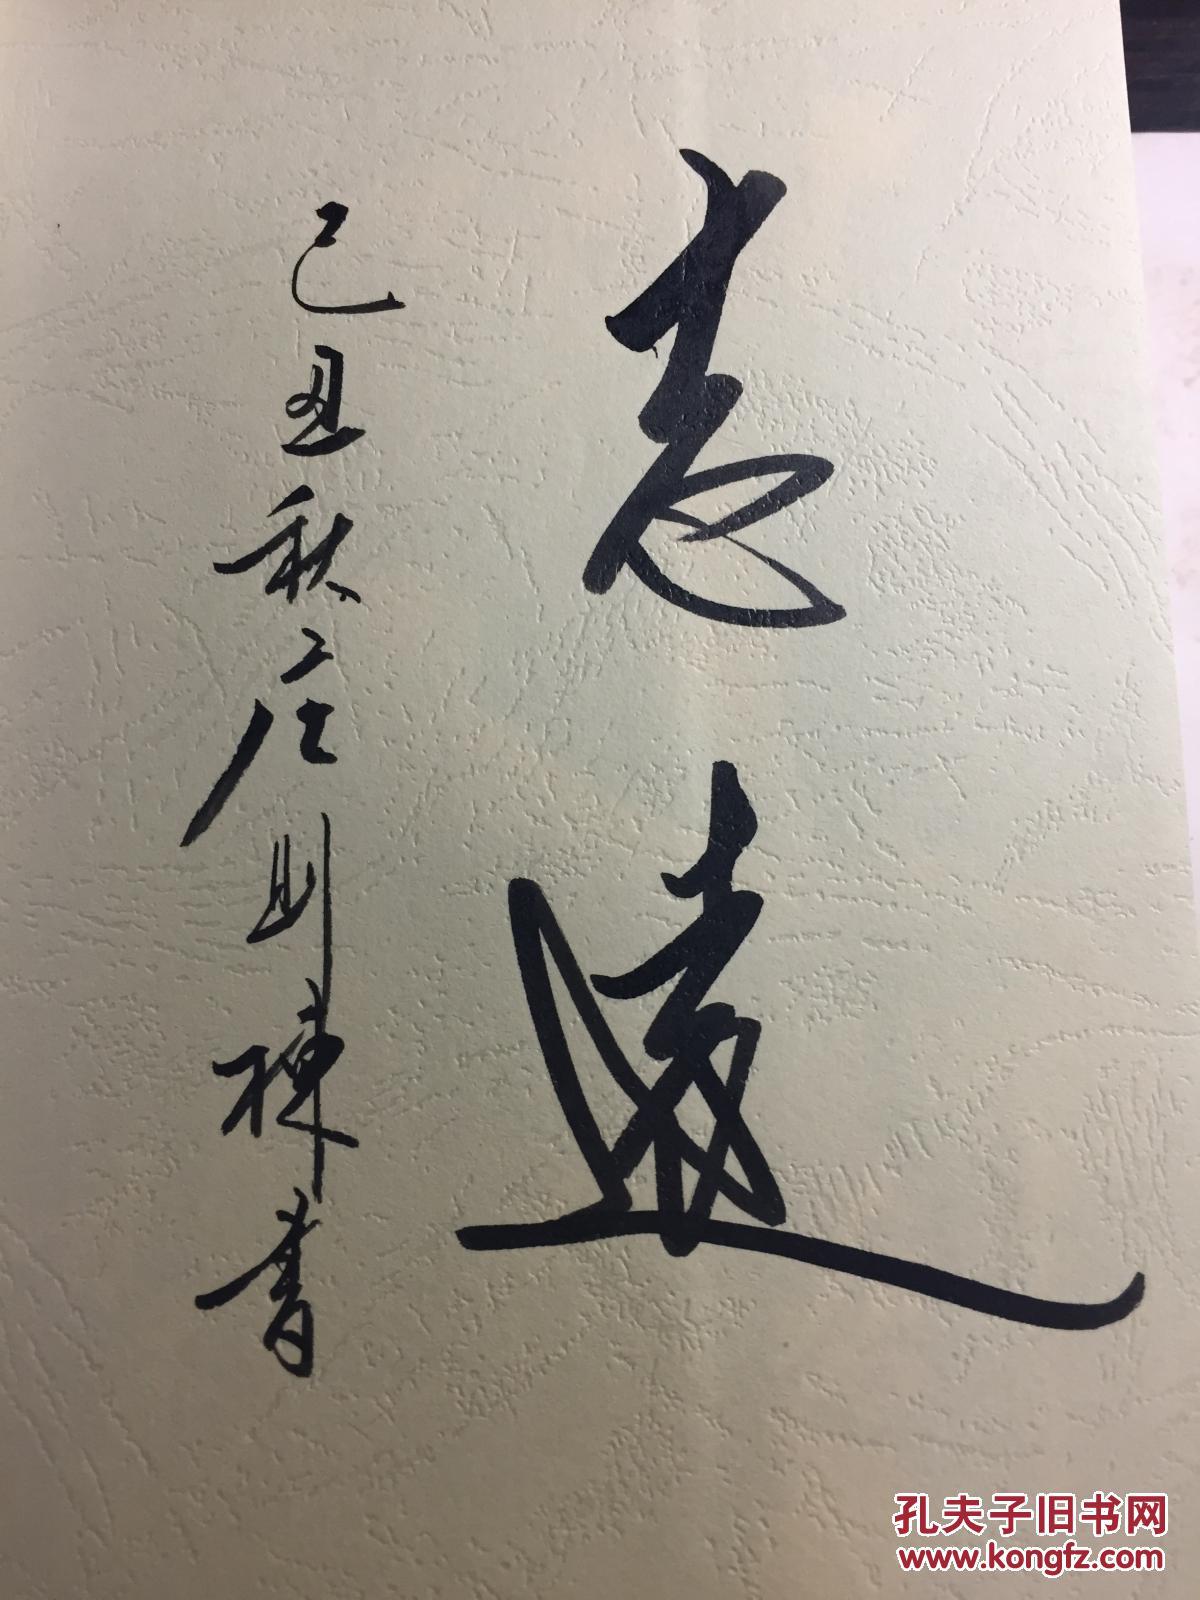 志遠
己丑秋庄则棟書
孔夫子旧书网
www.kongfz.com